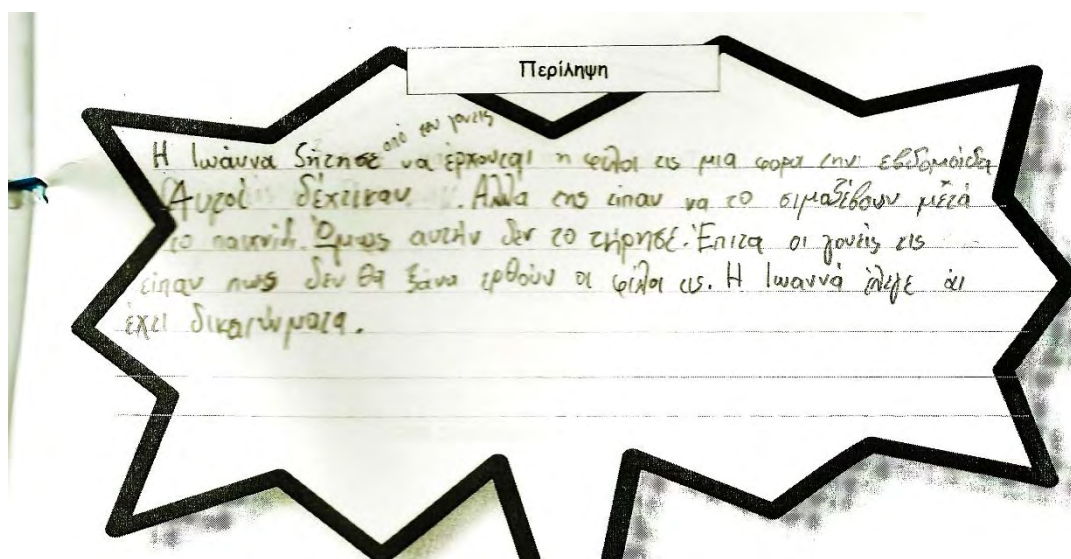 Περίληψη
από του γονείς
Η Ιωάννα ζήτησε να έρχουνται η φίλοι τις μια φορα την εβδομάιδα
Αυτοί δέχτικαν. Αλλα της είπαν να το σιμαζέβουν μετά
το παιχνίδι. Όμως αυτήν δεν το τήρησε. Έπιτα οι γονείς τις
είπαν πως δεν θα ξάνα ερθούν οι φίλοι τις. Η Ιωαννά έλεγε ότι
έχει δικαιώματα.